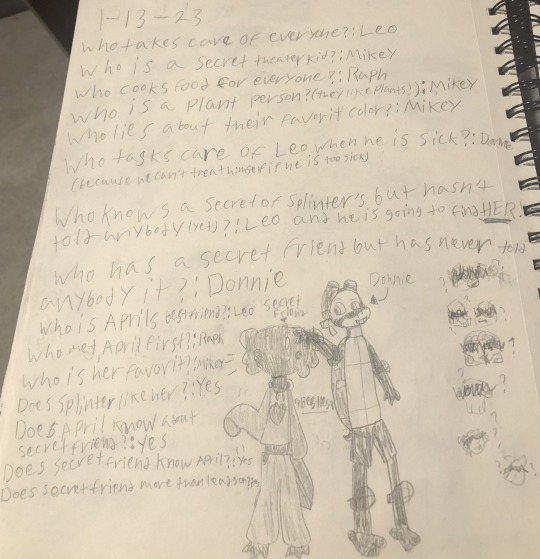 1-13-23
who takes care of everyone?: Leo
who is a secret theater kid?: Mikey
who cooks food for everyone?: Raph
who is a plant person? (they like plants!): Mikey
who lies about their favorit color?: Mikey
who tasks care of Leo when he is sick?: Donnie
(because he can't treat himself if he is too sick)
who knows a secret of Splinter's but hasn't
told anybody (yet)?: Leo and he is going to find HER!
who has a secret friend but has never told
anybody it?: Donnie
Donnie
who is Aprils best friend?: Leo
secret
who met April first?: Raph
who is her favorit?: Mikey
Does Splinter like her?: Yes
Does April know about
secret friend?: Yes
Does secret friend know April?: Yes
Does secret friend more than